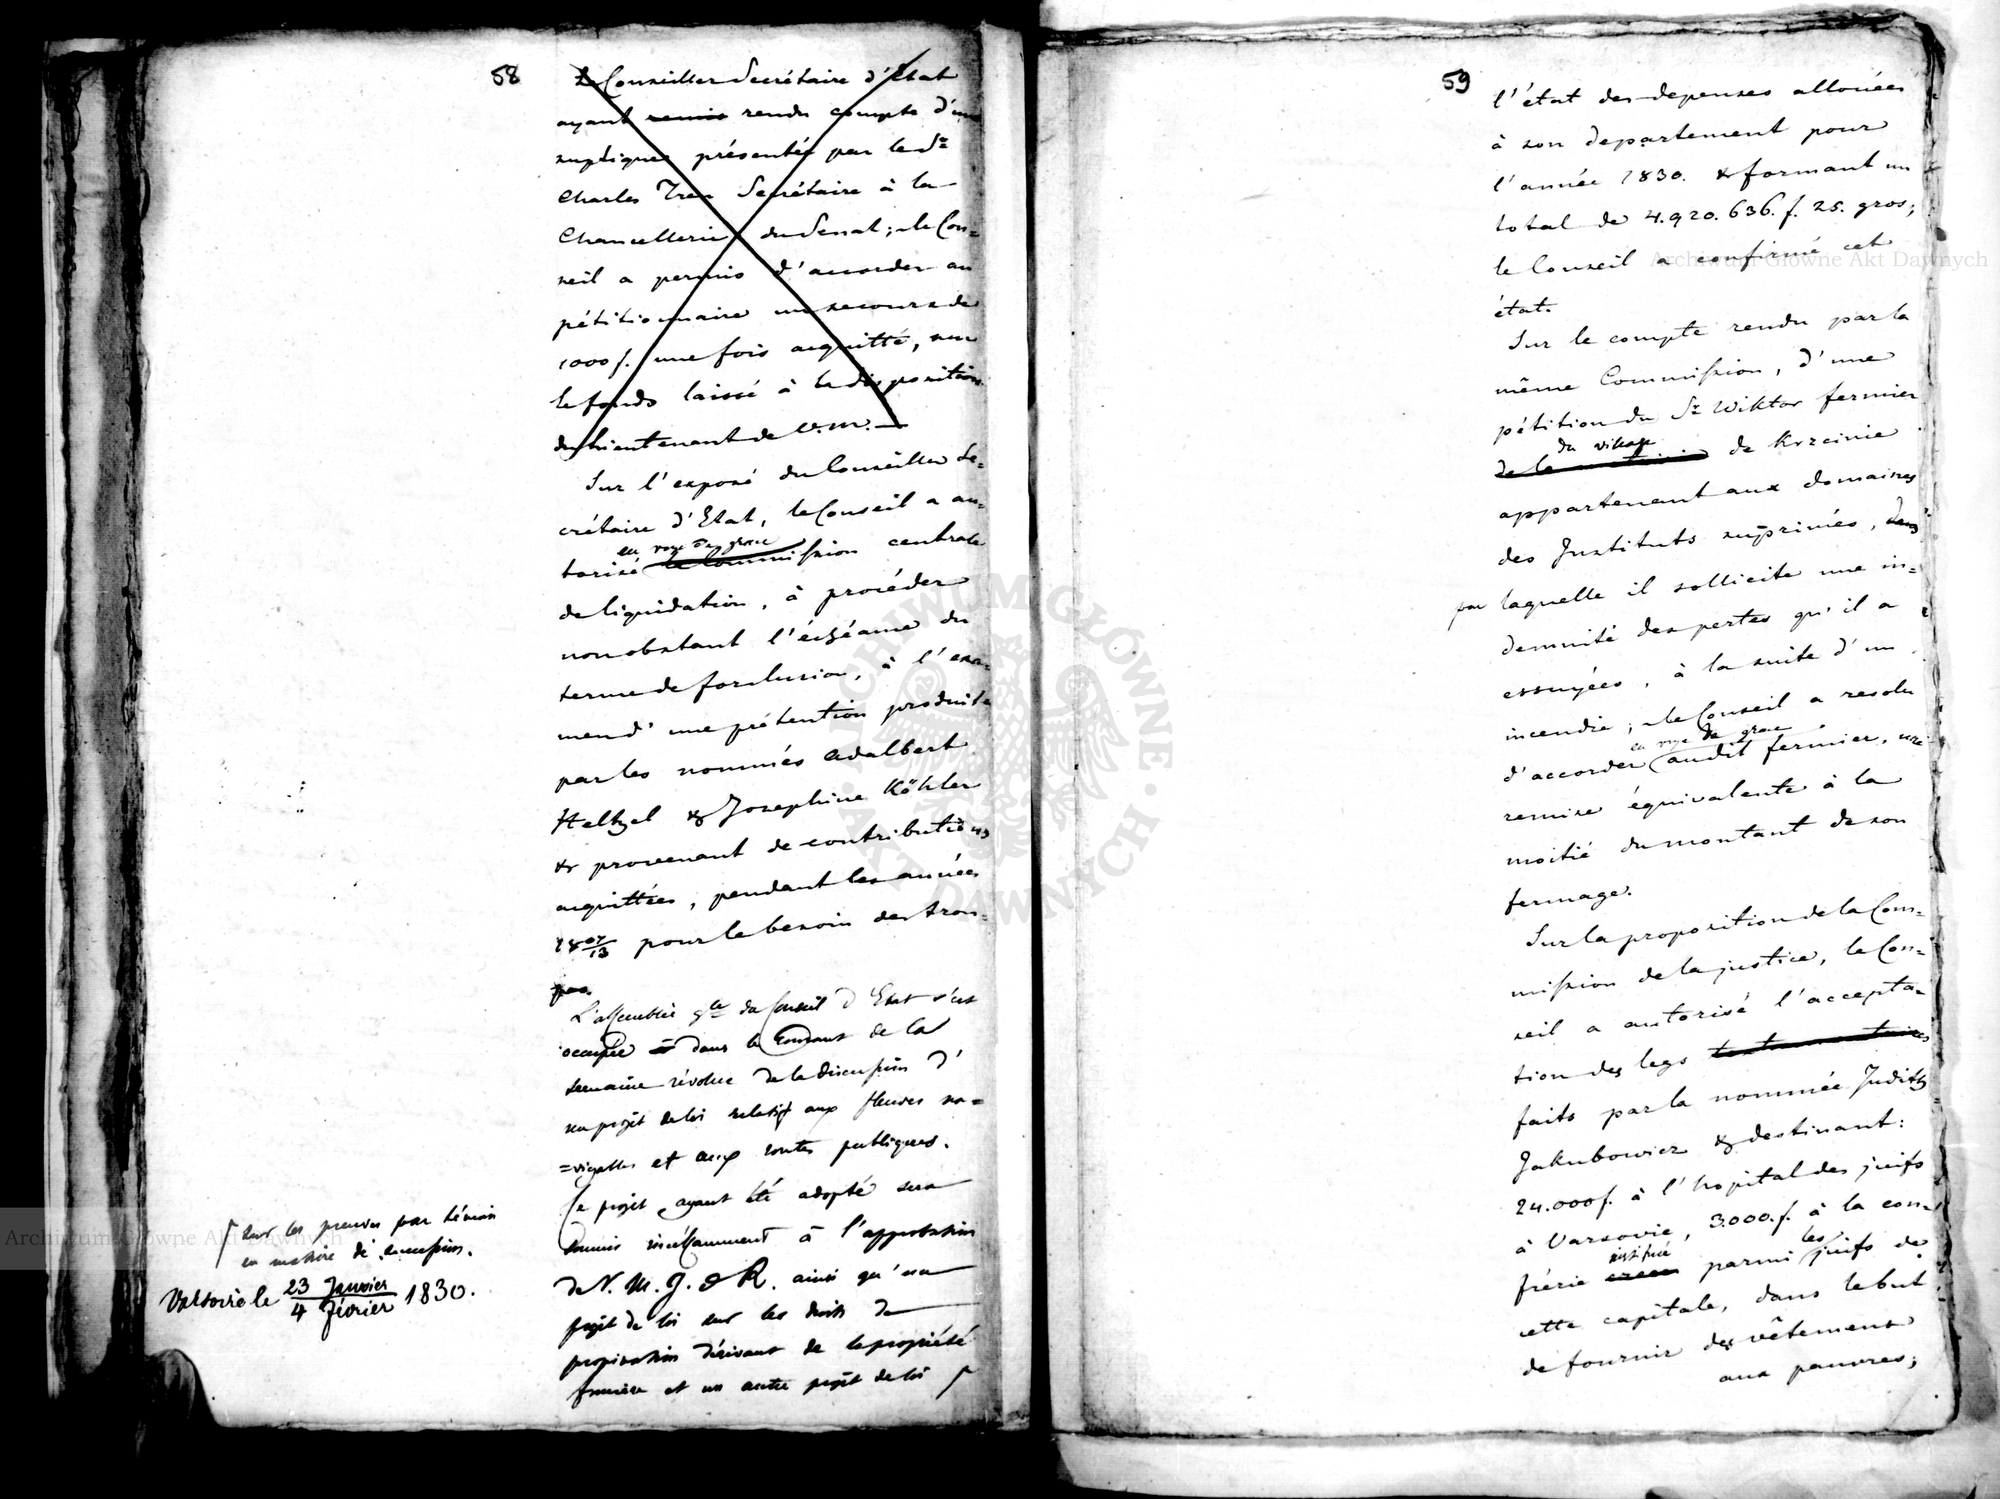 58
Le Conseiller Secrétaire d'Etat
ayant remis rendu compte d'une
supplique présentée par le Sr
Charles Secrétaire à la
Chancellerie du Senat; le Con=
seil a permis d'accorder au
pétitionnaire un secours de
1000 f. une fois acquitté, sur
le fonds laissé à la disposition
du Lieutenant de V. M. —
Sur l'exposé du Conseiller Se=
crétaire d'Etat, le Conseil a au=
en voye de grace
torisé la Commission centrale
de liquidation, à procéder
nonobstant l'échéance du
terme de forclusion, à l'exa=
men d'une prétention produite
par les nommés Adalbert
Heltzel & Josephine Köhler
& provenant de contributions
acquittées, pendant les années
1807/13 pour le besoin des trou=
pes.
L'assemblée gle du Conseil d'Etat s'est
occupée dans le courant de la
semaine révolue de la discussion d'
un projet de loi relatif aux fleuves na=
=vigables et aux routes publiques.
Ce projet ayant été adopté sera
soumis incessamment à l'approbation
de V. M. I. & R. ainsi qu'un
projet de loi sur les droits de
propination dérivant de la propriété
foncière et un autre projet de loi
sur les preuves par témoin
en matière de succession.
Varsovie le 23 Janvier / 4 Février 1830.
59
l'état des depenses allouées
à son departement pour
l'année 1830. & formant un
total de 4.920.636. f. 25. gros;
le Conseil a confirmé cet
état.
Sur le compte rendu par la
même Commission, d'une
pétition du Sr Wiktor fermier
du village
de la de Krzcinie
appartenant aux domaines
des Instituts suprimés, dans
par laquelle il sollicite une in=
demnité des pertes qu'il a
essuyées, à la suite d'un
incendie; le Conseil a resolu
en voye de grace
d'accorder audit fermier, une
remise équivalente à la
moitié du montant de son
fermage.
Sur la proposition de la Com=
mission de la justice, le Con=
seil a autorisé l'accepta=
tion des legs testamentaires
faits par la nommée Judith
Jakubowicz & destinant:
24.000 f. à l'hopital des juifs
à Varsovie, 3.000. f. à la con=
institué les
frérie parmi juifs de
cette capitale, dans le but
de fournir des vêtemens
aux pauvres;
Archiwum Główne Akt Dawnych
Archiwum Główne Akt Dawnych
ARCHIWUM GŁÓWNE AKT DAWNYCH